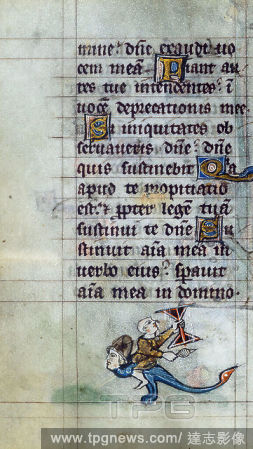 mine: dñe exaudi uo
cem meã Fiant au
res tue intendentes: ĩ
uocẽ deprecationis mee
Si iniquitates ob
seruaueris dñe: dñe
quis sustinebit Q̃a
apud te propitiatio
est: ꝓpter legẽ tuã
sustinui te dñe Su
stinuit aĩa mea in
uerbo eius: spauit
aĩa mea in domino.
TPG
www.tpgnews.com / 達志影像